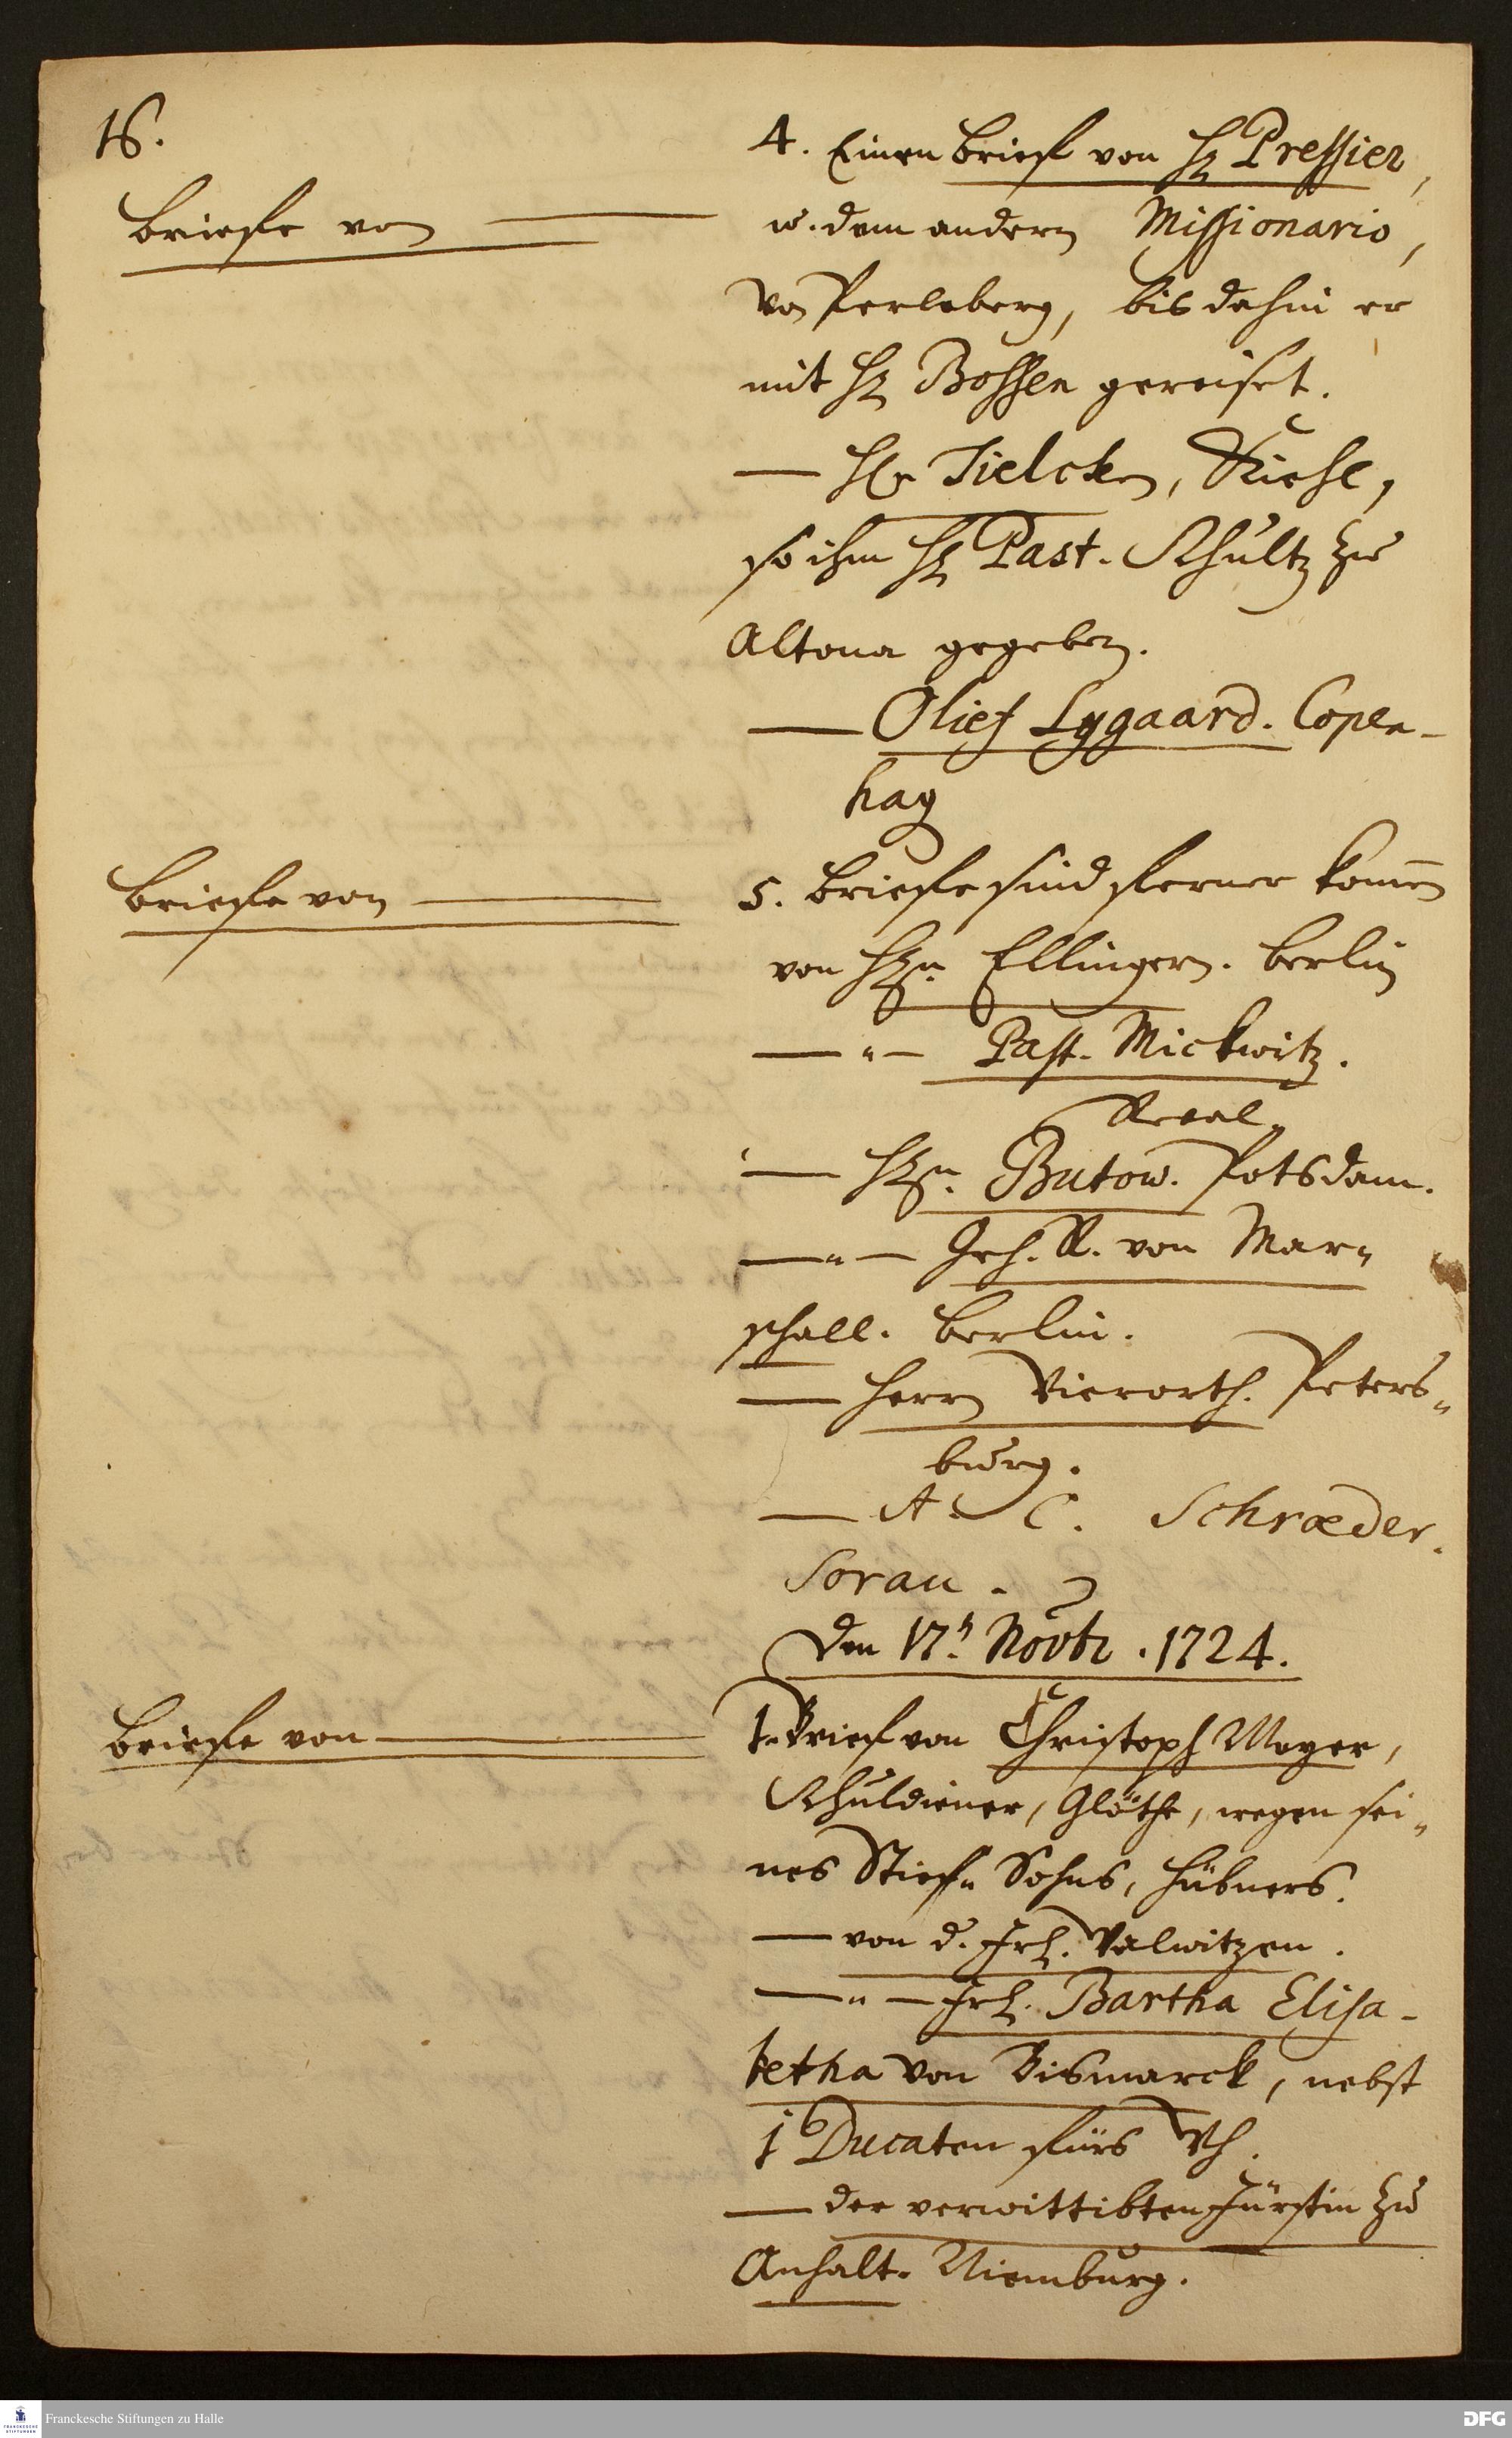 16.
Briefe von
4. Einen Brief von H. Pressier,
u. dem andern Missionario,
von Perleberg, bis dahin er
mit H. Bossen gereiset.
— Hr Tielcken,
so ihm H. Past. Schultz zu
Altona gegeben.
— Olief Lygaard. Copen-
hag
Briefe von
5. Briefe sind ferner komen
von Hrn. Ellingern. Berlin
— " — Past. Mickwitz.
Reval.
— Hrn. Butow. Potsdam.
— " — Geh. R. von Mar-
schall. Berlin.
— Herrn Vierorth. Peters-
burg.
— A. C. Schrœder.
Sorau.
Den 17t. Novbr. 1724.
Briefe von
1. Brief von Christoph Mayer,
Schuldiener, Glöthe, wegen sei-
nes Stief-Sohns, Hübners.
— von d. Frl. Valwitzen.
— " — Frl. Bartha Elisa-
betha von Bismarck, nebst
1 Ducaten fürs Wh.
— der verwittibten Fürstin zu
Anhalt. Niemburg.
Franckesche Stiftungen zu Halle
DFG